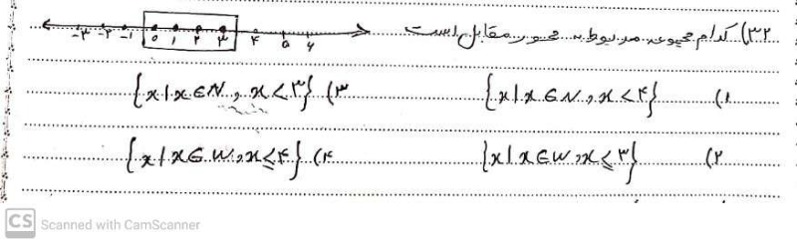 ۳۲) کدام مجموعه مربوط به محور مقابل است
-۳ -۲ -۱ ۰ ۱ ۲ ۳ ۴ ۵ ۶
۱) {x | x ∈ N , x < ۴}
۳) {x | x ∈ N , x < ۳}
۲) {x | x ∈ W , x ≤ ۳}
۴) {x | x ∈ W , x ≤ ۴}
CS Scanned with CamScanner